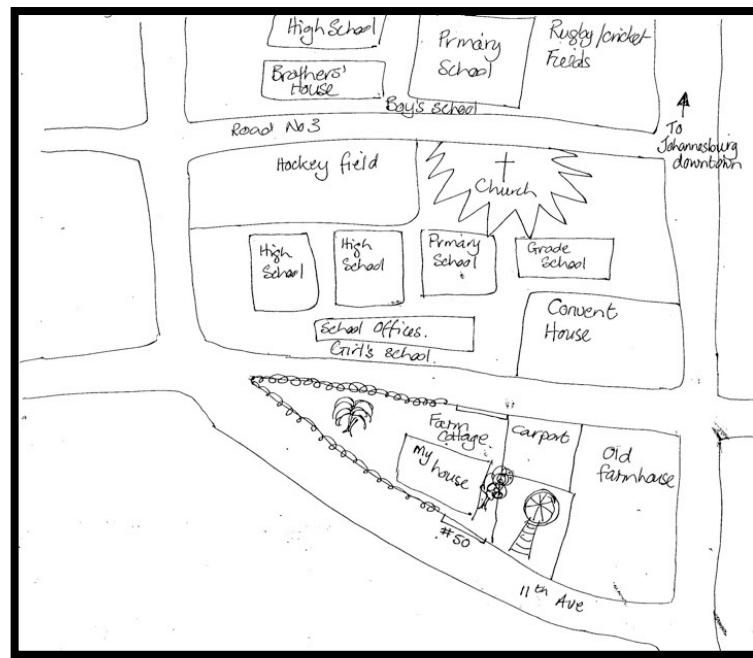 High School
Primary
School
Rugby/cricket
Fields
Brothers'
House
Boy's school
Road No 3
To
Johannesburg
downtown
Hockey field
Church
High
School
High
School
Primary
School
Grade
School
Convent
House
School Offices.
Girl's school.
Farm
Cottage
carport
Old
farmhouse
My
house
#50
11th Ave